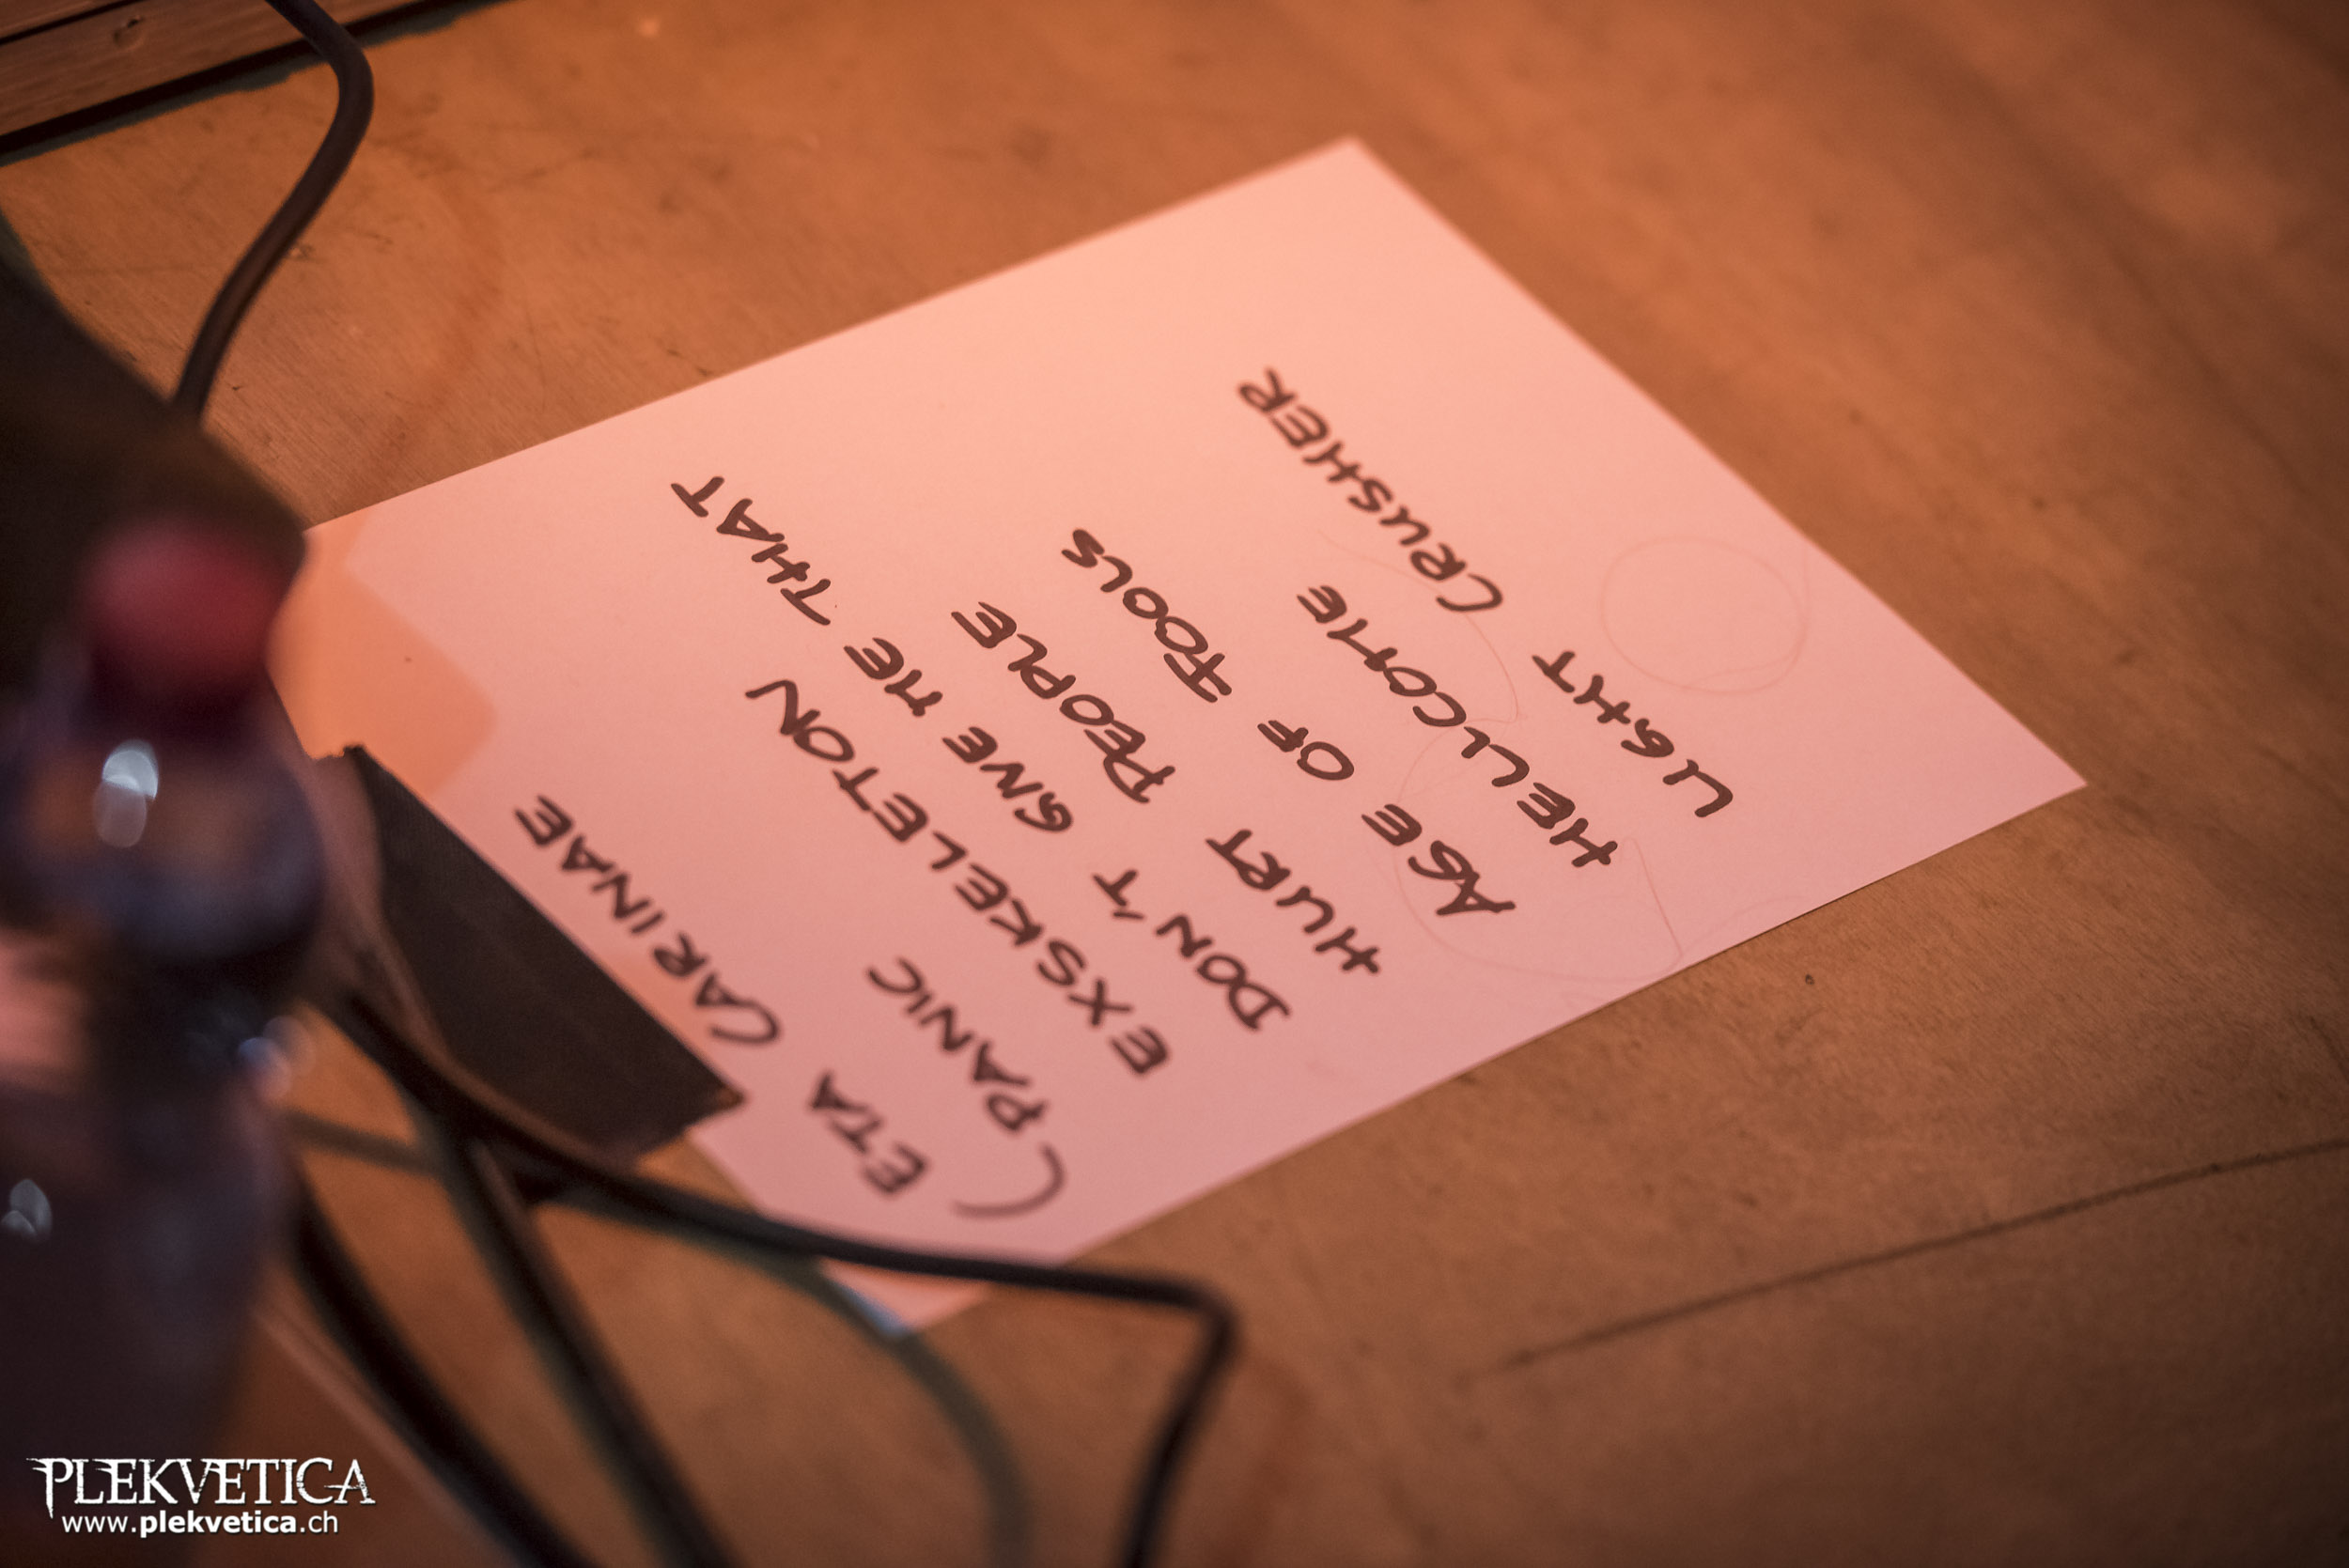 ETA CARINAE
(PANIC
EXSKELETON
DON'T GIVE ME THAT
HURT PEOPLE
AGE OF FOOLS
HELLCOME
LIGHT CRUSHER
PLEKVETICA
www.plekvetica.ch